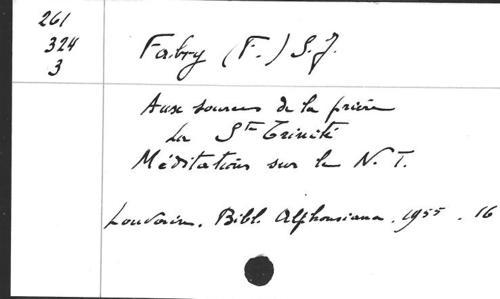 261
324
3
Fabry (F.) S.J.
Aux sources de la prière
La Ste Trinité
Méditations sur le N.T.
Louvain. Bibl. Alphonsiana. 1955. 16